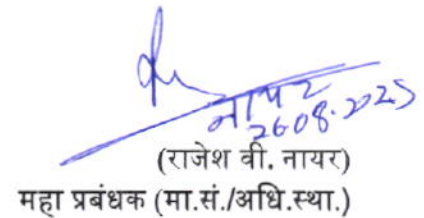 नायर
26.08.2025
(राजेश वी. नायर)
महा प्रबंधक (मा.सं./अधि.स्था.)